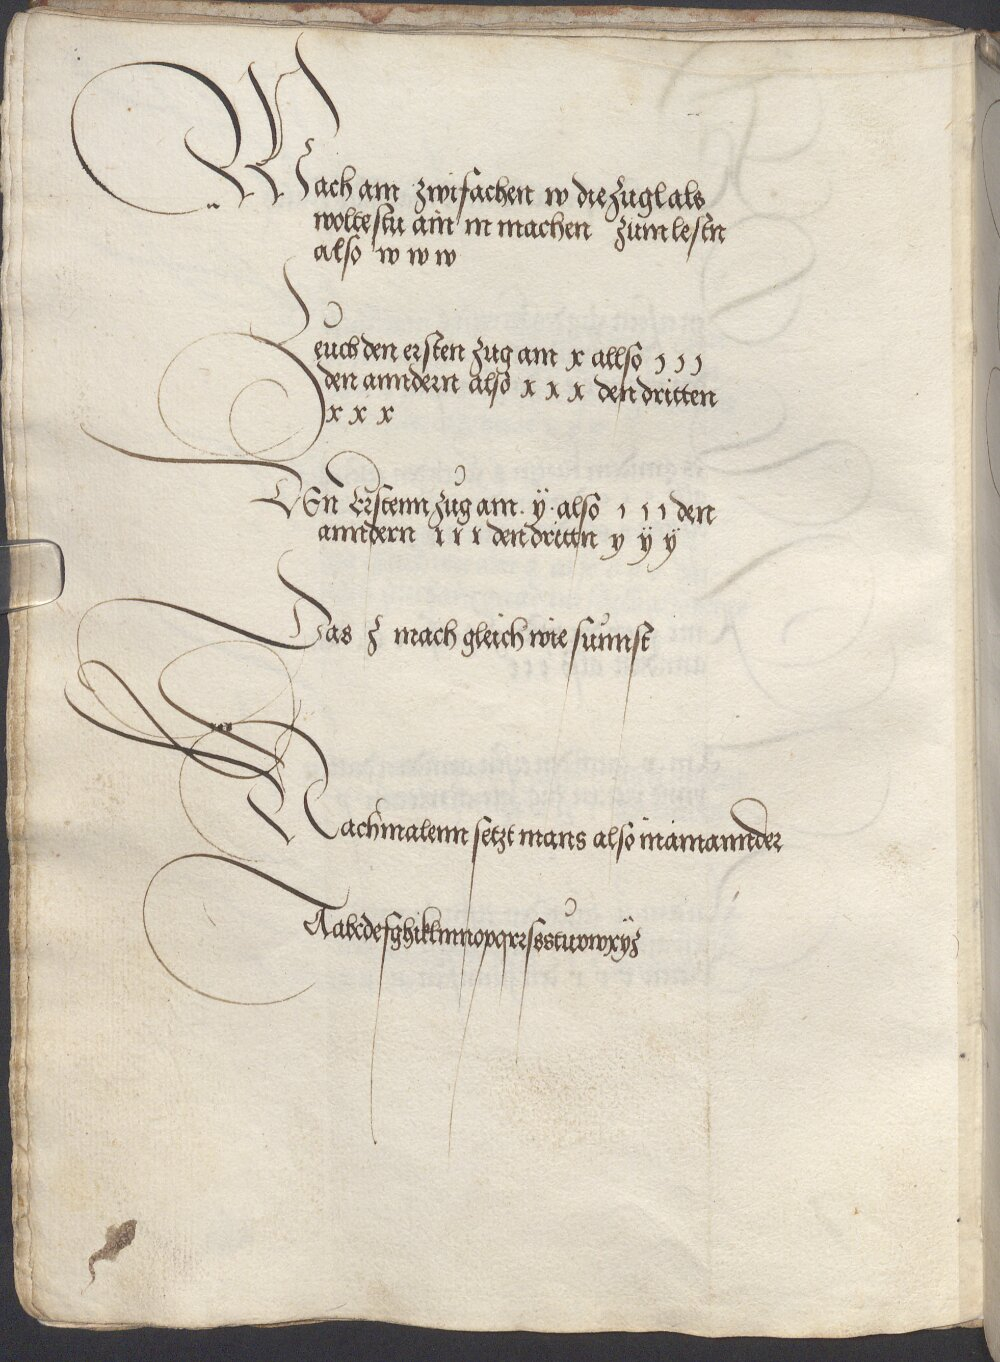 Mach am zwifachen w die Zugl als
woltestu ain m machen zum lestn
also w w w
Zeuch den ersten Zug am x allso ɿ ɿ ɿ
den anndern also x x x den dritten
x x x
DEn Erstenn zug am. ÿ. also ı ı ı den
anndern ɾ ɾ ɾ den drittn y ÿ ÿ
Das z mach gleich wie sunnst
Nachmalenn setzt mans also in ainannder
Aabcdefghiklmnopqrrſsstuvwxÿz